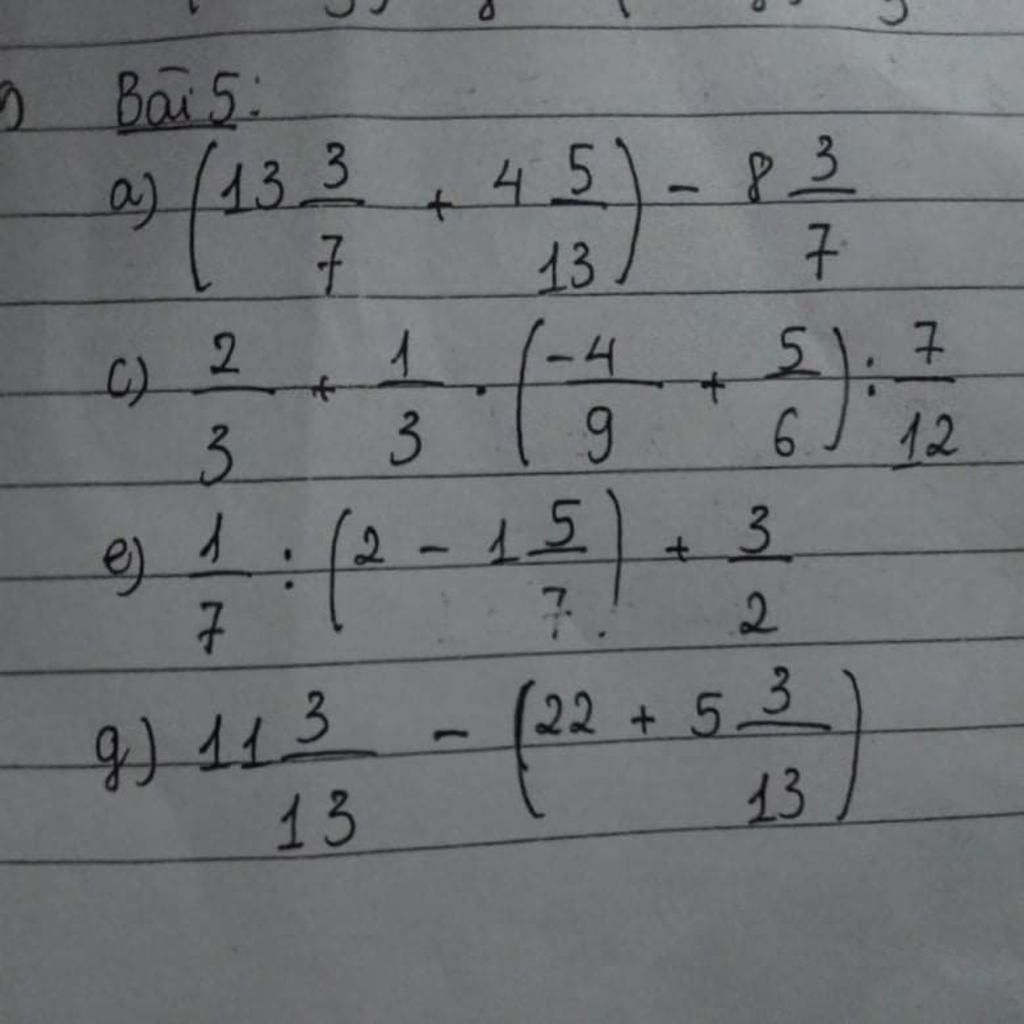 Bài 5:
a) (13 3/7 + 4 5/13) - 8 3/7
c) 2/3 + 1/3 . (-4/9 + 5/6) : 7/12
e) 1/7 : (2 - 1 5/7) + 3/2
g) 11 3/13 - (22 + 5 3/13)